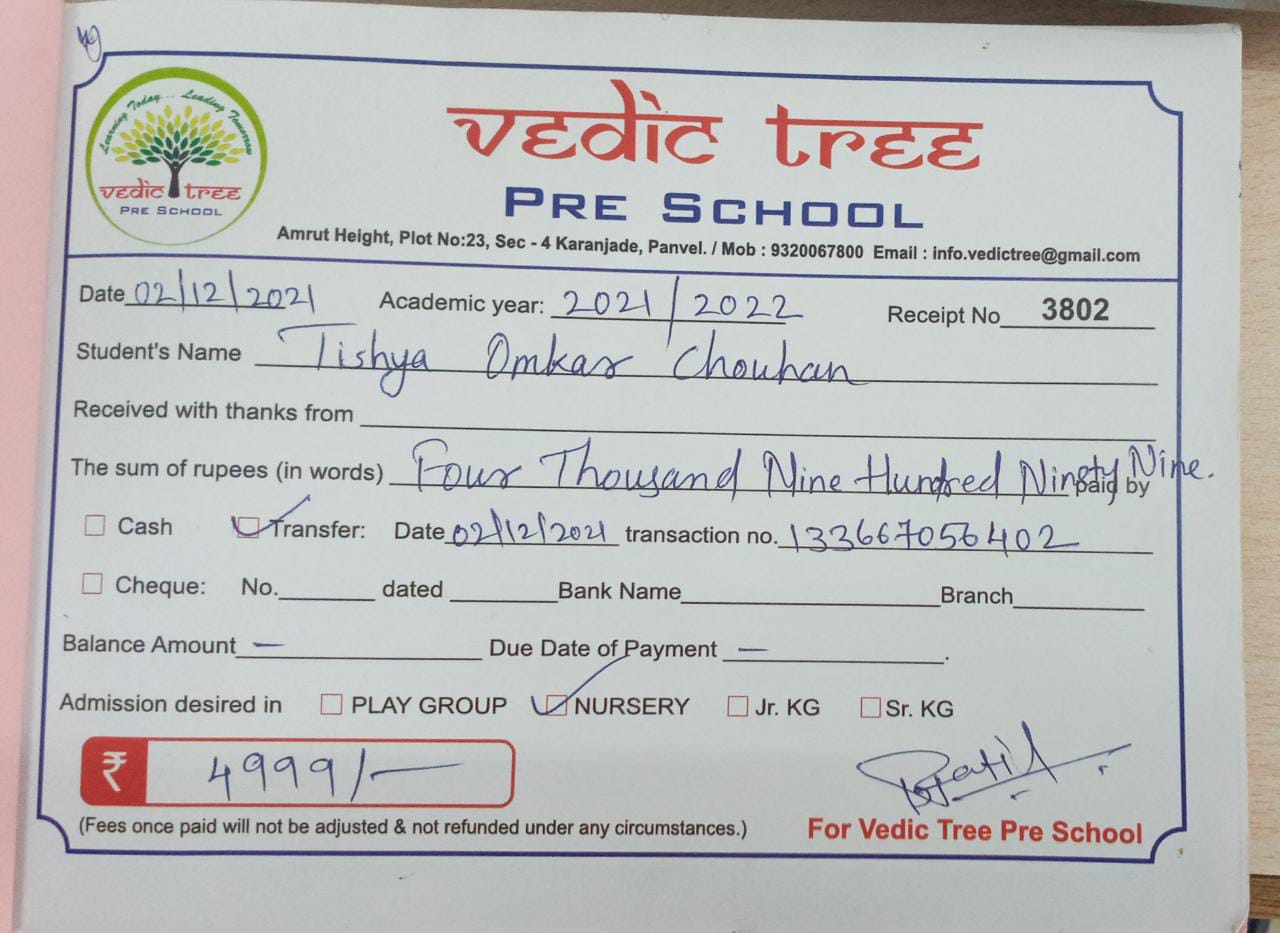 Learning Today... Leading Tomorrow
vedic tree
PRE SCHOOL
vedic tree
PRE SCHOOL
Amrut Height, Plot No:23, Sec - 4 Karanjade, Panvel. / Mob : 9320067800 Email : info.vedictree@gmail.com
Date 02/12/2021 Academic year: 2021/2022 Receipt No 3802
Student's Name Tishya Omkar Chouhan
Received with thanks from
The sum of rupees (in words) Four Thousand Nine Hundred Ninety Nine. paid by
Cash Transfer: Date 02/12/2021 transaction no. 133667056402
Cheque: No. dated Bank Name Branch
Balance Amount — Due Date of Payment — .
Admission desired in PLAY GROUP NURSERY Jr. KG Sr. KG
₹ 4999/—
(Fees once paid will not be adjusted & not refunded under any circumstances.) For Vedic Tree Pre School